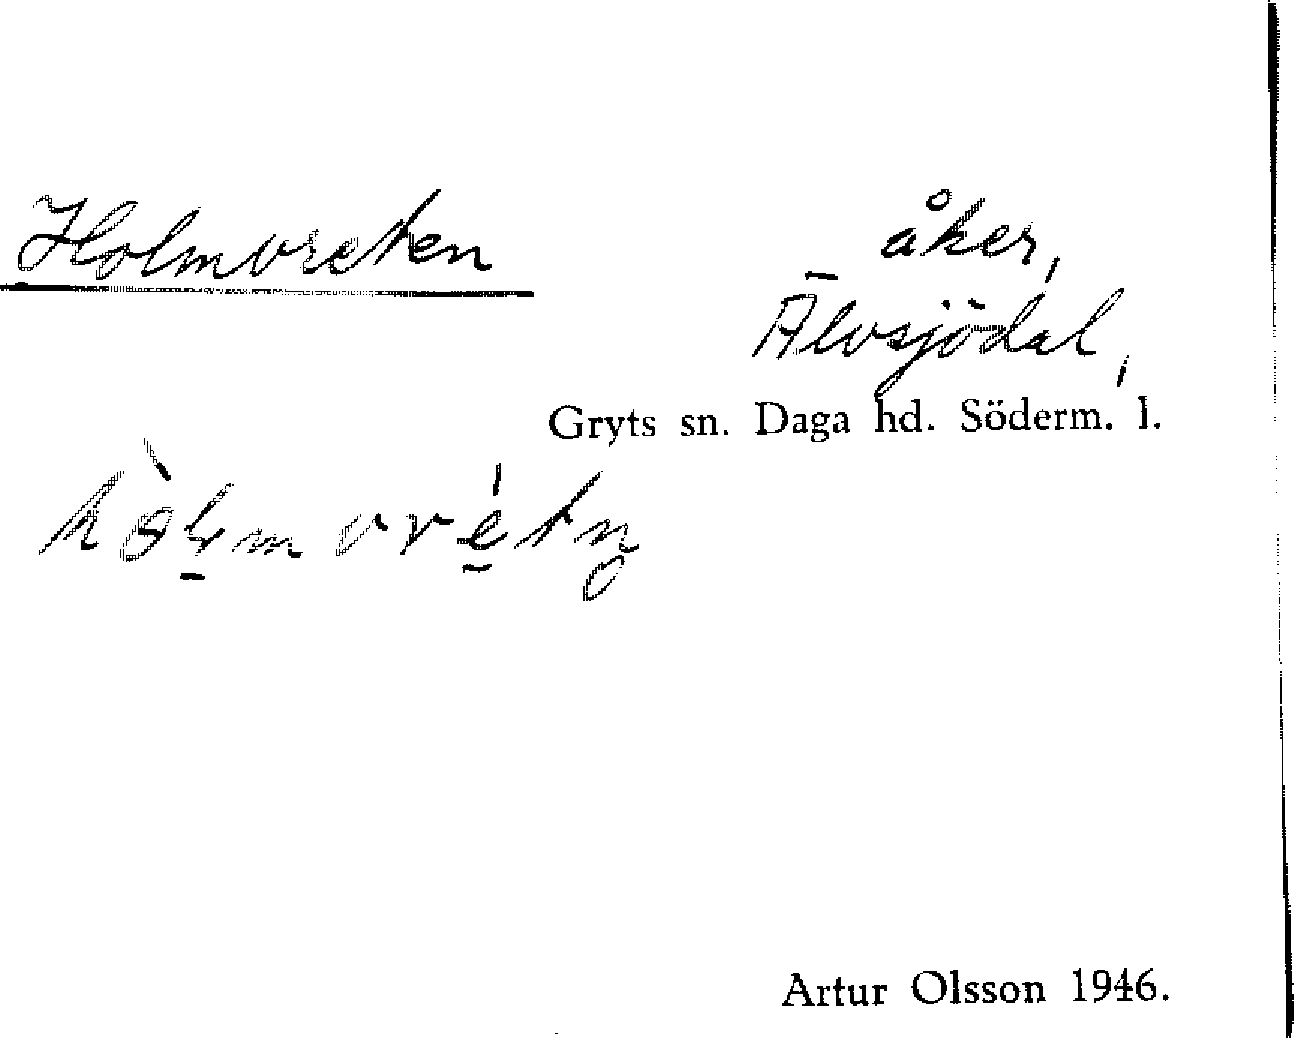 Holmvreten
åker,
Älvsjödal,
Gryts sn. Daga hd. Söderm. l.
hòl̠m vrét̠n̥
Artur Olsson 1946.